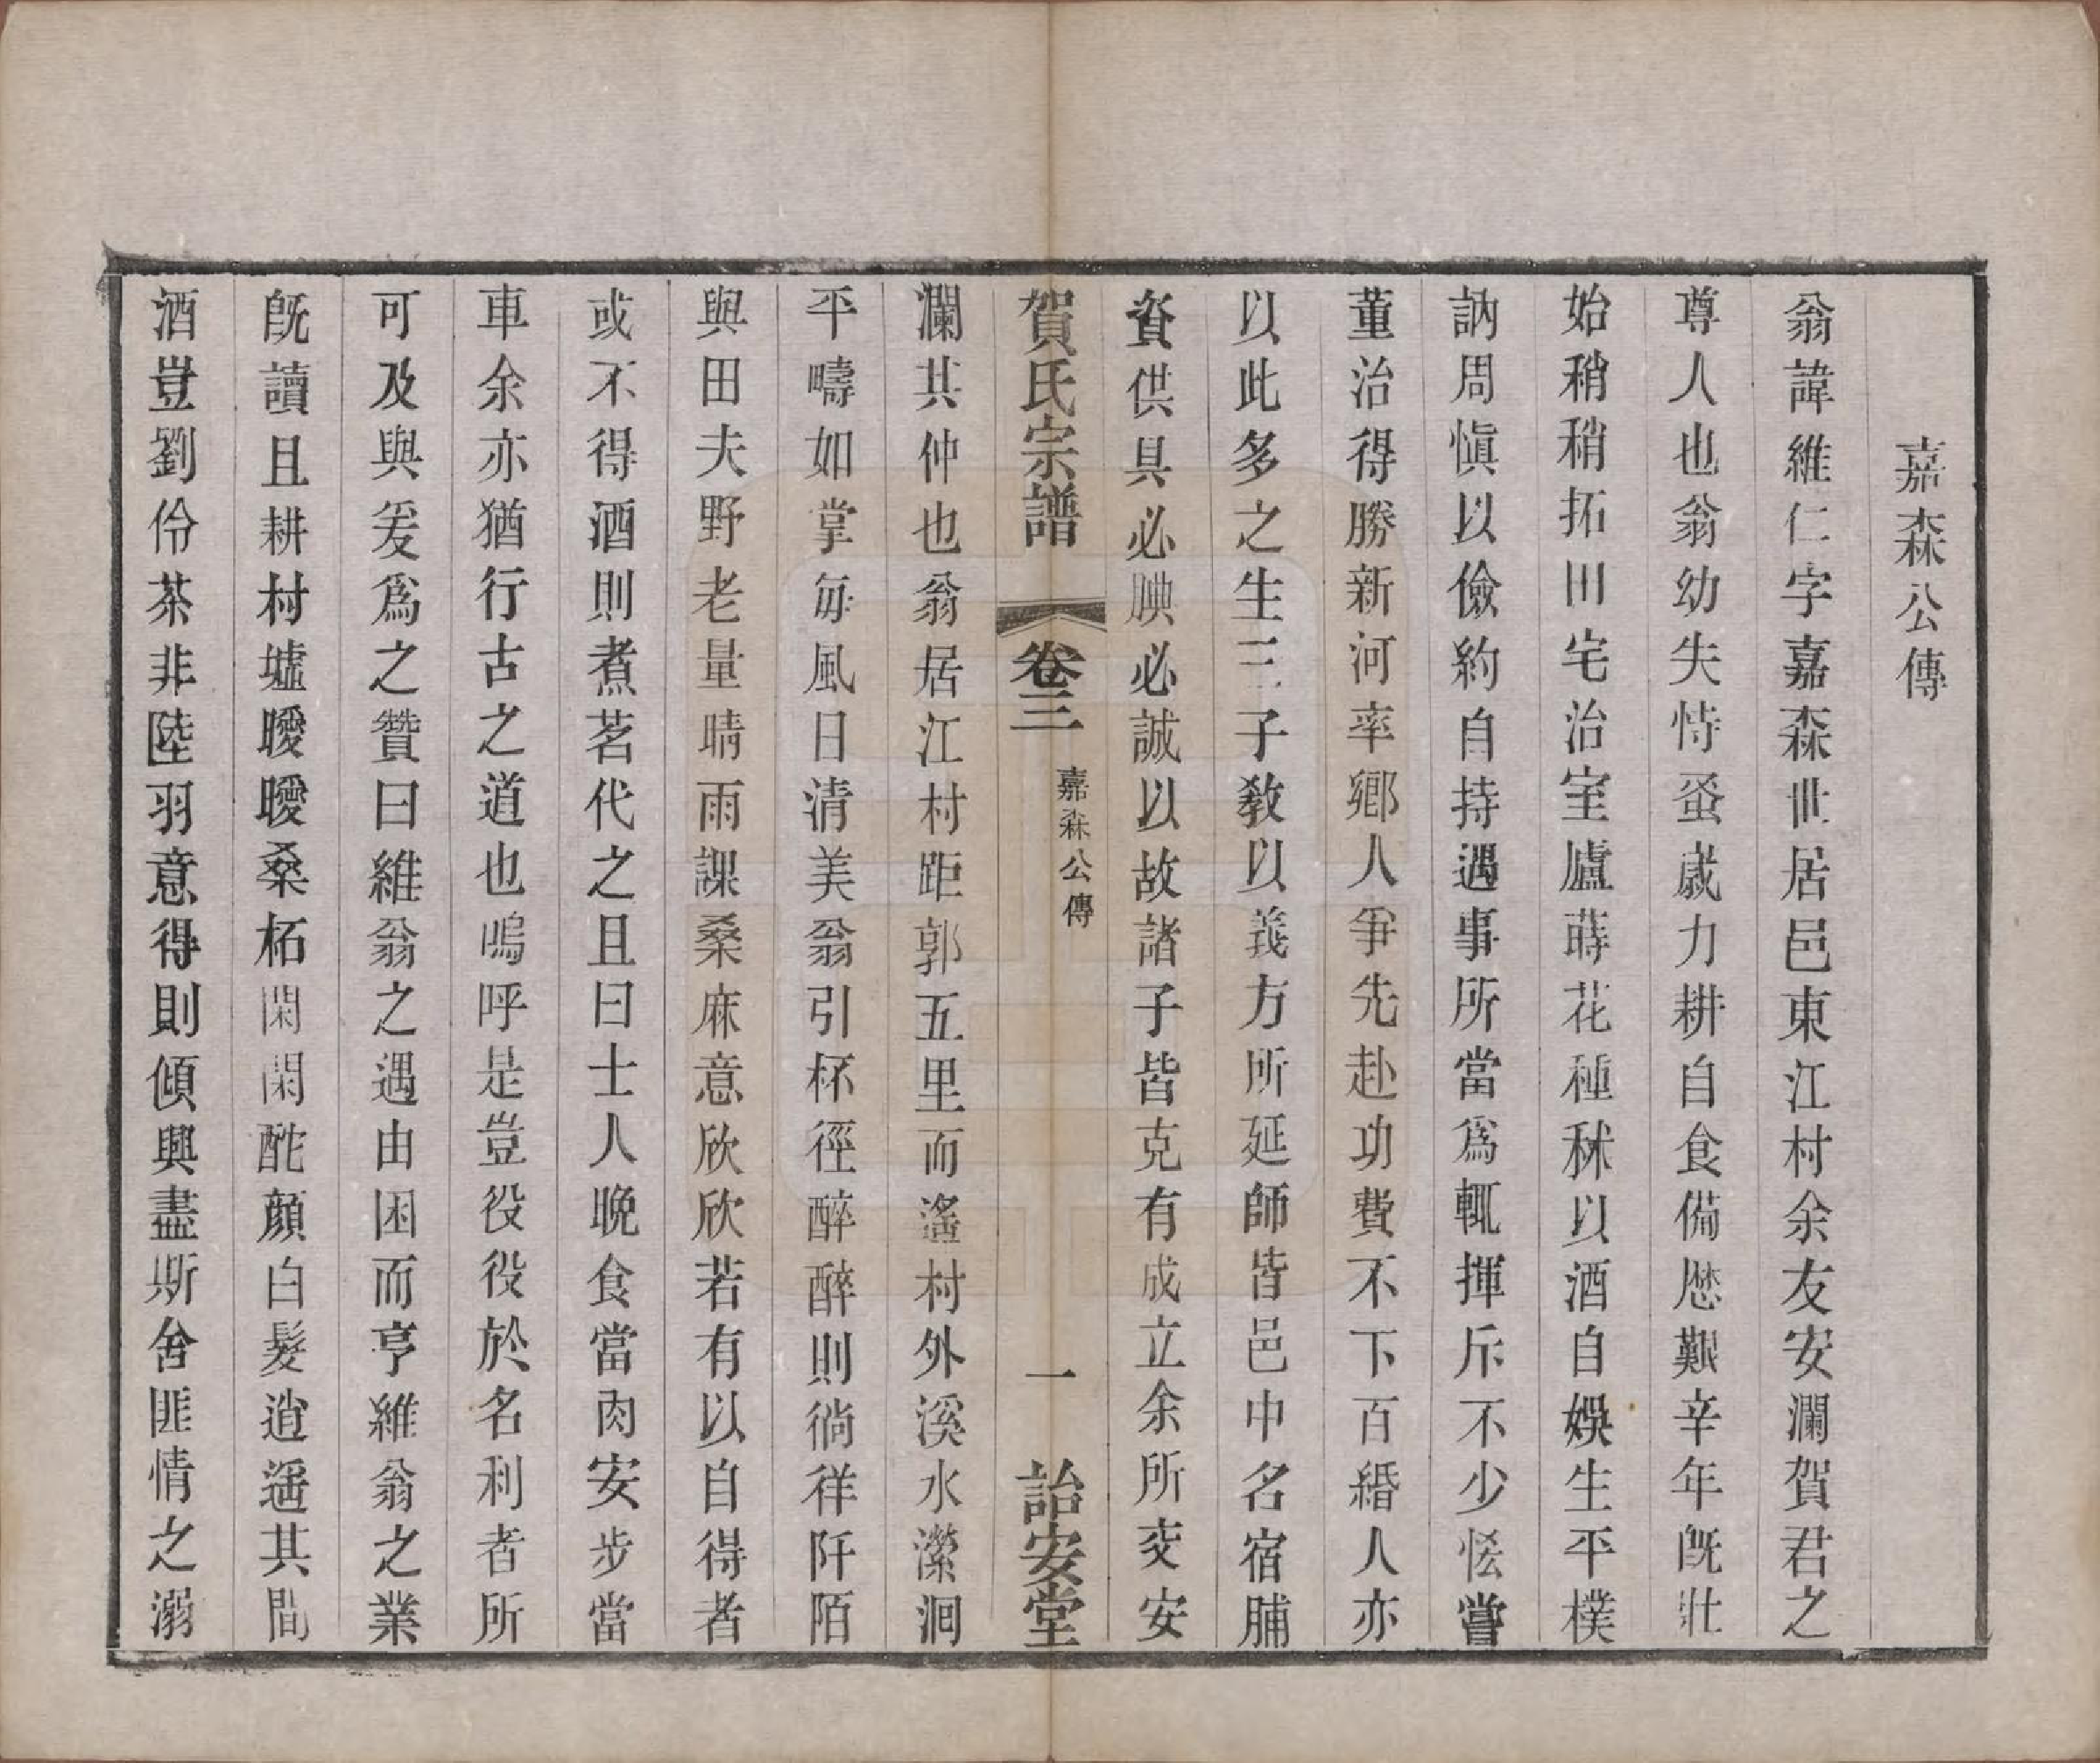 嘉森公傳
翁諱維仁字嘉森世居邑東江村余友安瀾賀君之
尊人也翁幼失恃蚤歲力耕自食備歷艱辛年旣壯
始稍稍拓田宅治室廬蒔花種秫以酒自娛生平樸
訥周愼以儉約自持遇事所當爲輒揮斥不少恡嘗
董治得勝新河率鄉人爭先赴功費不下百緡人亦
以此多之生三子敎以義方所延師皆邑中名宿脯
資供具必腆必誠以故諸子皆克有成立余所交安
賀氏宗譜 卷三 嘉森公傳 一 詒安堂
瀾其仲也翁居江村距郭五里而遙村外溪水瀠洄
平疇如掌每風日清美翁引杯徑醉醉則徜徉阡陌
與田夫野老量晴雨課桑麻意欣欣若有以自得者
或不得酒則煮茗代之且曰士人晚食當肉安步當
車余亦猶行古之道也嗚呼是豈役役於名利者所
可及與爰爲之贊曰維翁之遇由困而亨維翁之業
旣讀且耕村墟曖曖桑柘閑閑酡顔白髮逍遥其間
酒豈劉伶茶非陸羽意得則傾興盡斯舍匪情之溺